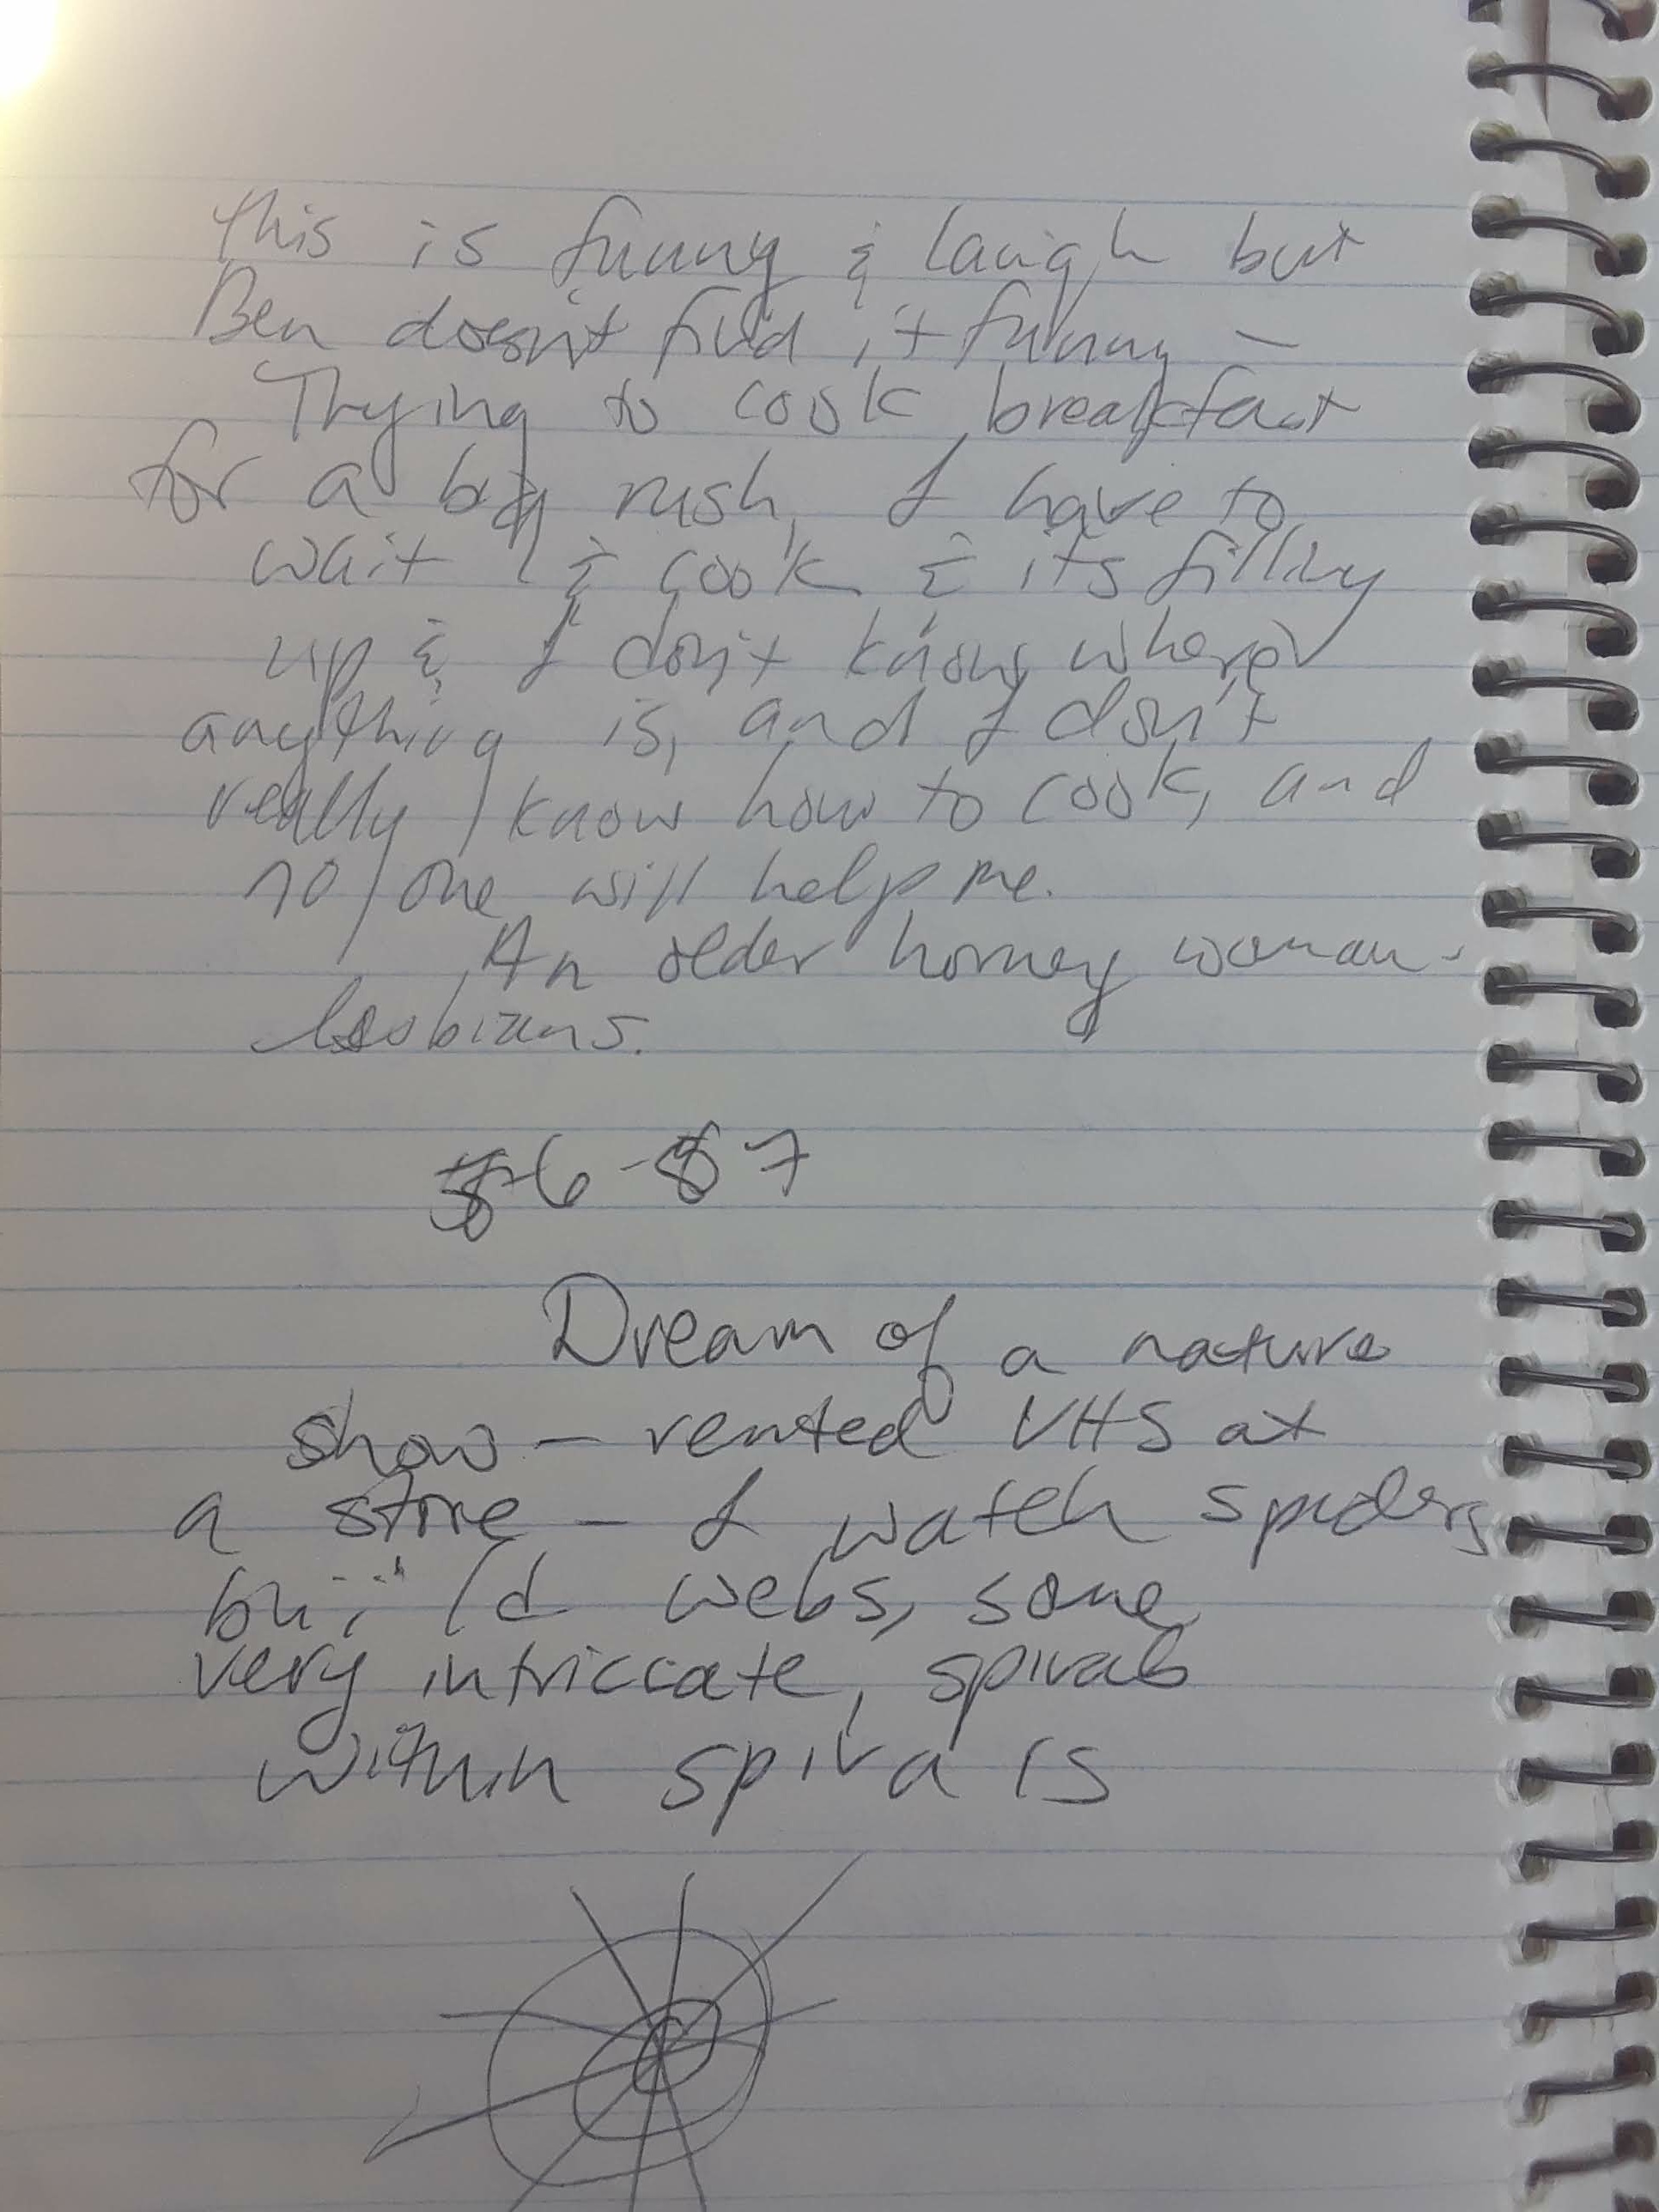 this is funny & laugh but
Ben doesn't find it funny —
Trying to cook breakfast
for a big rush, I have to
wait & cook & its filling
up & I don't know where
anything is, and I don't
really know how to cook, and
no one will help me.
An older horney woman -
lesbians.
6 - 7
Dream of a nature
show — rented VHS at
a store — I watch spiders
build webs, some
very intriccate, spirals
within spirals